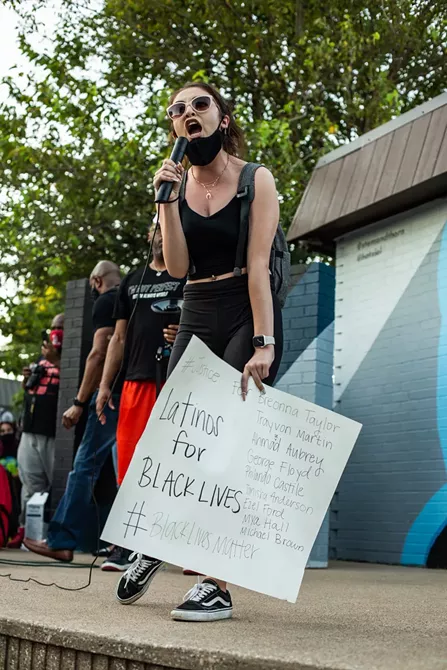 #Justice For
Latinos
for
BLACK LIVES
#BlackLivesMatter
Breonna Taylor
Trayvon Martin
Ahmad Aubrey
George Floyd
Philando Castile
Tanisha Anderson
Ezel Ford
Mya Hall
Michael Brown